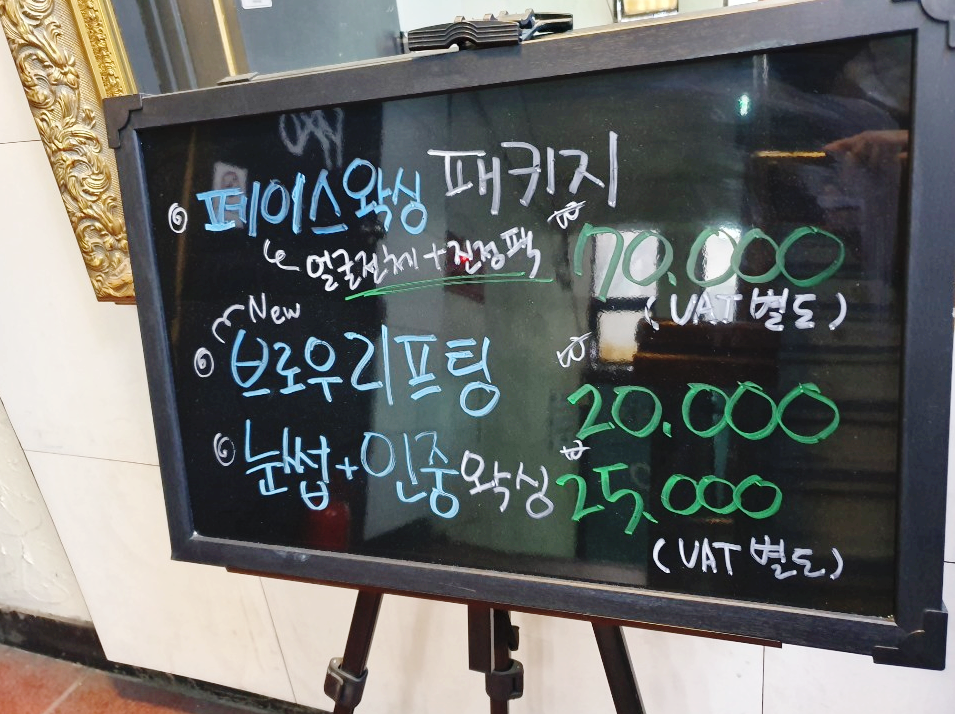 페이스왁싱 패키지
얼굴전체+진정팩
₩70.000
(VAT별도)
New
브로우리프팅 ₩20.000
눈썹+인중왁싱 ₩25,000
(VAT별도)